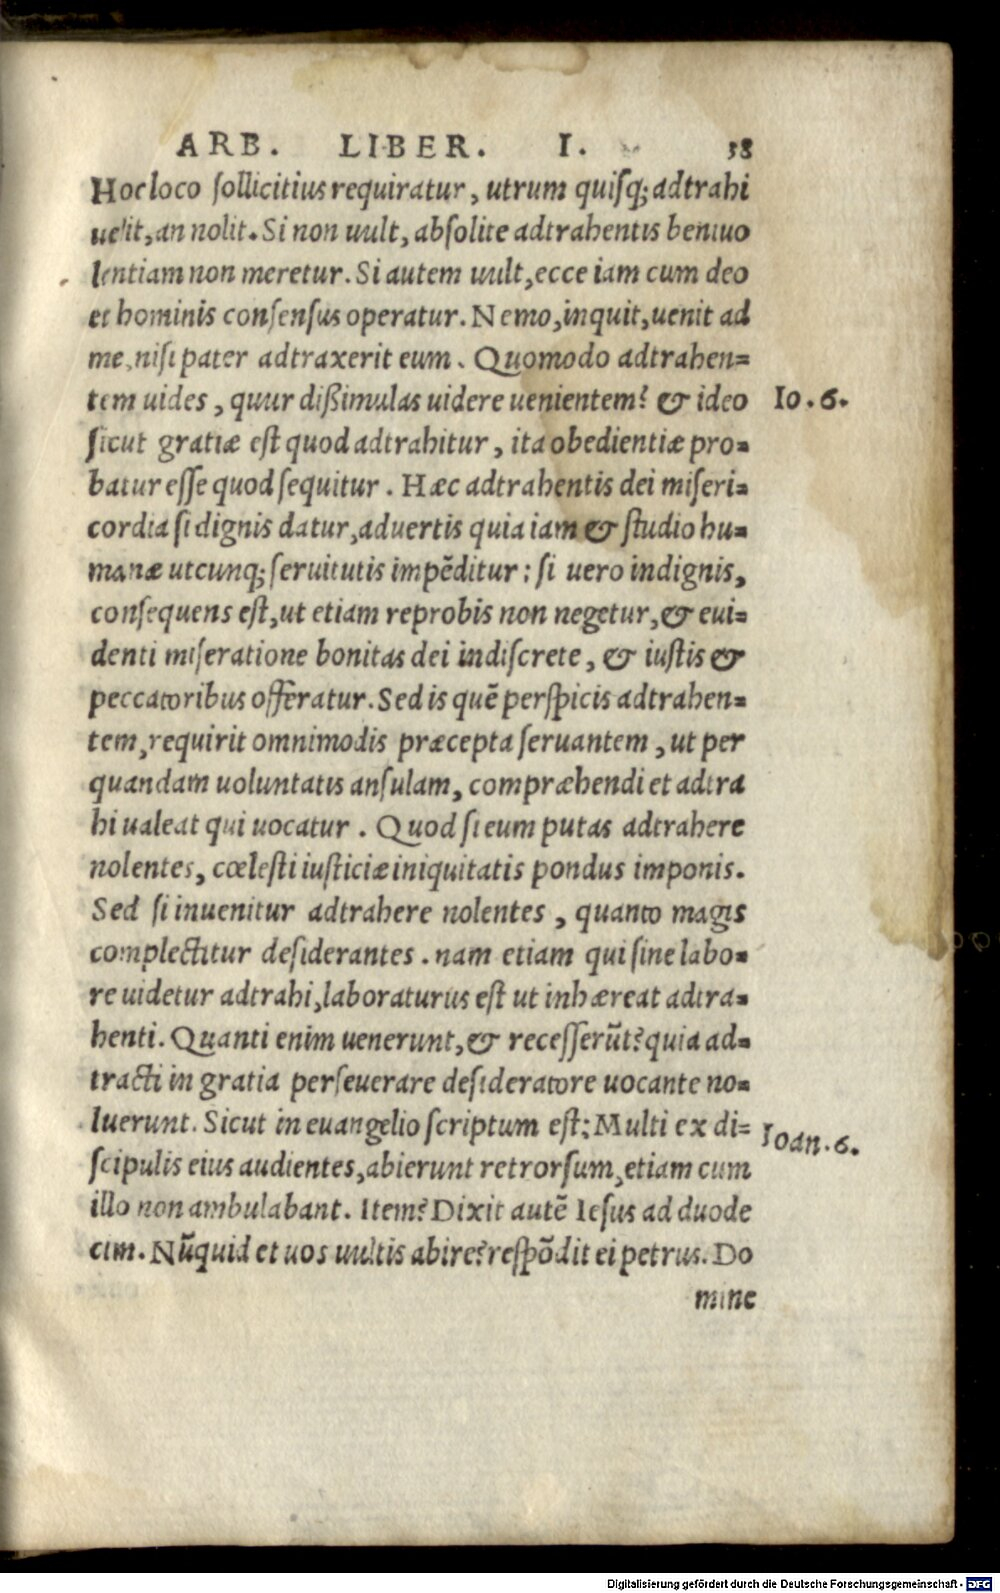 ARB. LIBER. I. 38
Hoc loco sollicitius requiratur, utrum quisq; adtrahi
uelit, an nolit. Si non uult, absolite adtrahentis beniuo
lentiam non meretur. Si autem uult, ecce iam cum deo
et hominis consensus operatur. Nemo, inquit, uenit ad
me, nisi pater adtraxerit eum. Quomodo adtrahen=
tem uides, quur dißimulas uidere uenientem? & ideo
Io. 6.
sicut gratiæ est quod adtrahitur, ita obedientiæ pro=
batur esse quod sequitur. Hæc adtrahentis dei miseri=
cordia si dignis datur, aduertis quia iam & studio hu=
manæ utcunq; seruitutis impēditur: si uero indignis,
consequens est, ut etiam reprobis non negetur, & eui=
denti miseratione bonitas dei indiscrete, & iustis &
peccatoribus offeratur. Sed is quē perspicis adtrahen=
tem, requirit omnimodis præcepta seruantem, ut per
quandam uoluntatis ansulam, compræhendi et adtra
hi ualeat qui uocatur. Quod si eum putas adtrahere
nolentes, cœlesti iusticiæ iniquitatis pondus imponis.
Sed si inuenitur adtrahere nolentes, quanto magis
complectitur desiderantes. nam etiam qui sine labo=
re uidetur adtrahi, laboraturus est ut inhæreat adtra=
henti. Quanti enim uenerunt, & recesserūt? quia ad=
tracti in gratia perseuerare desideratore uocante no=
luerunt. Sicut in euangelio scriptum est: Multi ex di=
Ioan. 6.
scipulis eius audientes, abierunt retrorsum, etiam cum
illo non ambulabant. Item? Dixit autē Iesus ad duode
cim. Nūquid et uos uultis abire? respōdit ei petrus. Do
mine
Digitalisierung gefördert durch die Deutsche Forschungsgemeinschaft - DFG